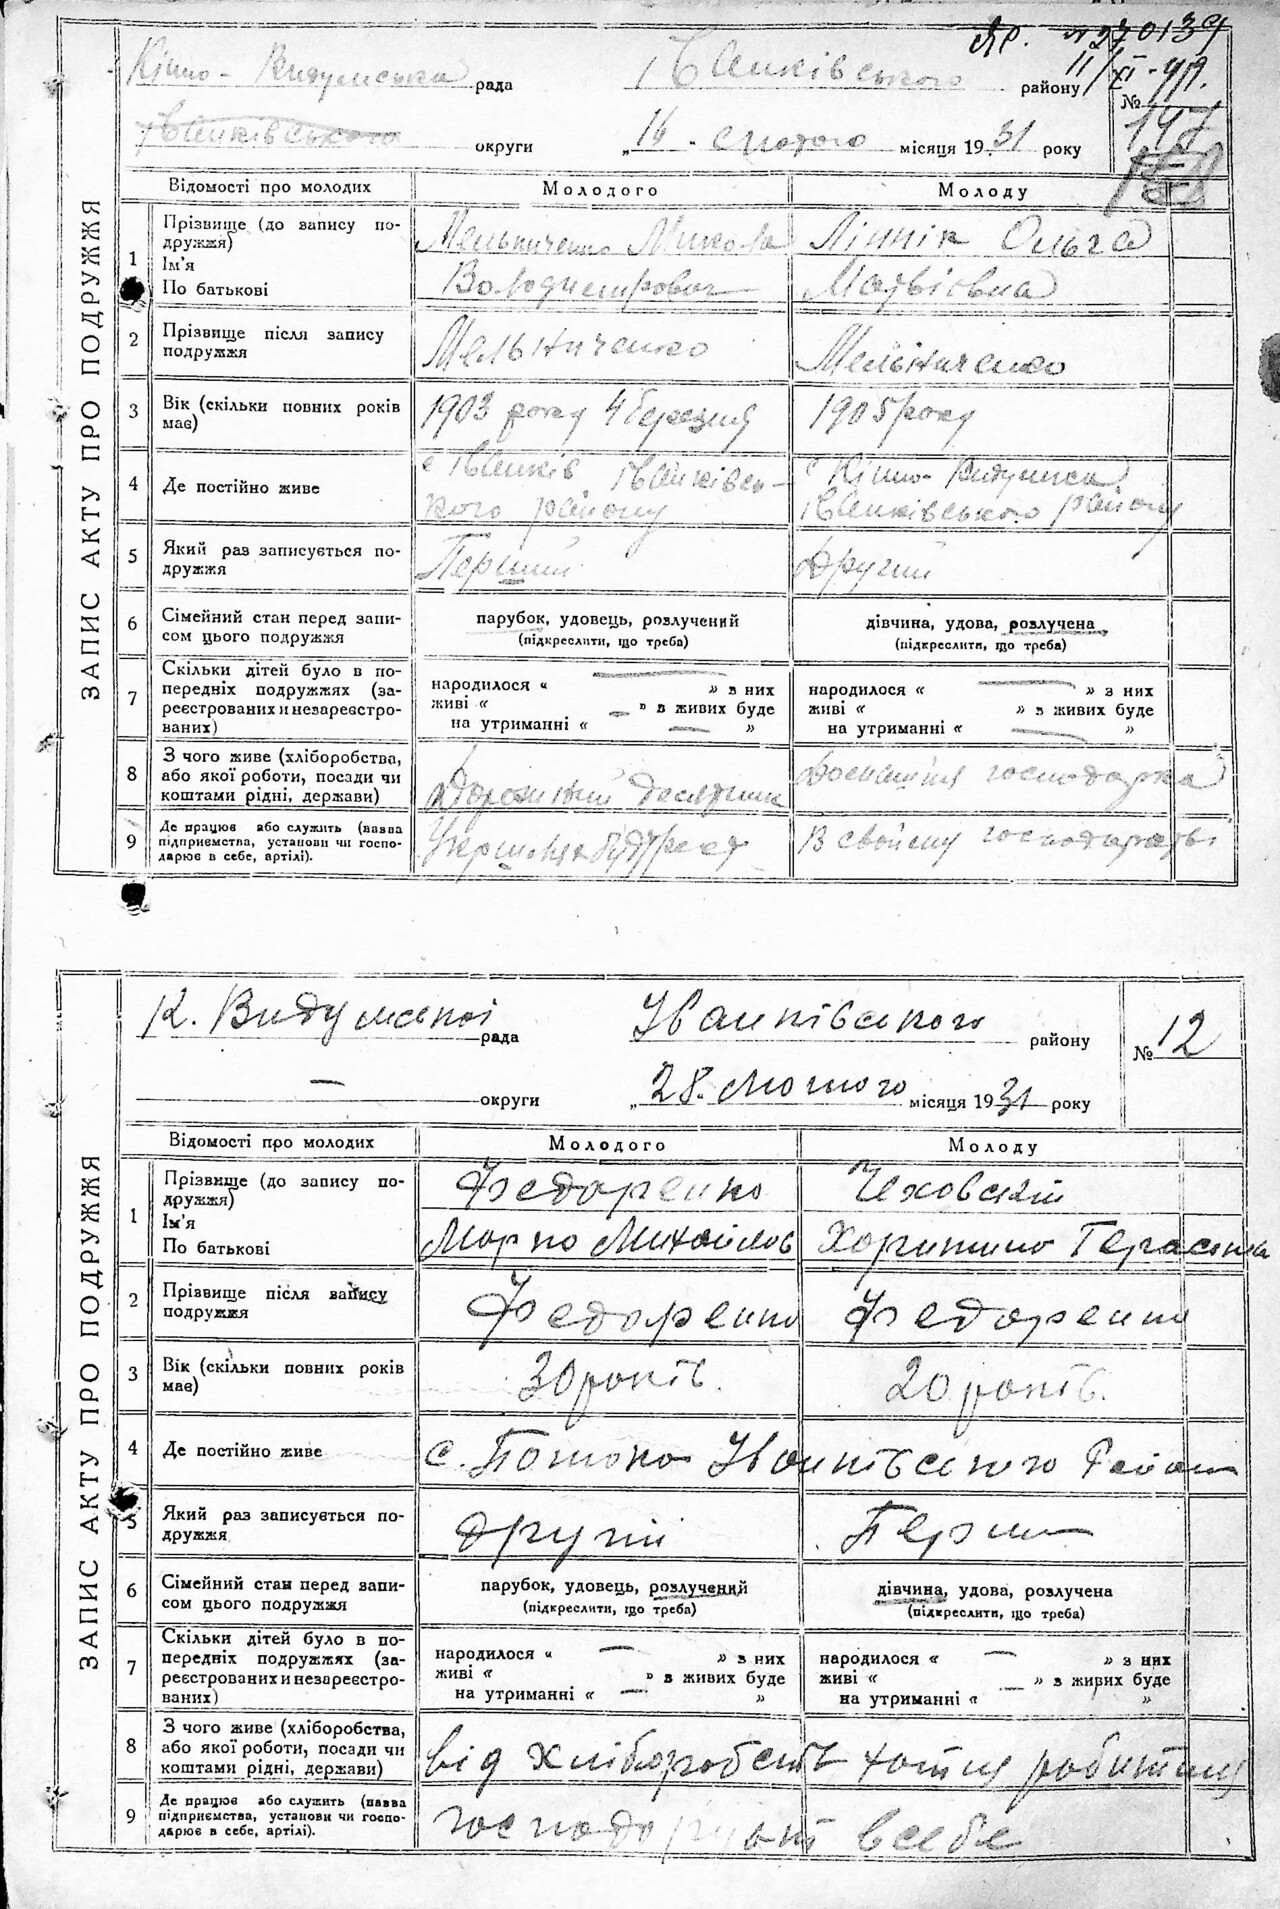 № 270139
11/XI-
Кішо-Видумська рада Іванківського району
№ 197
Іванківського округи „16 - лютого місяця 1931 року
ЗАПИС АКТУ ПРО ПОДРУЖЖЯ
Відомості про молодих Молодого Молоду
1 Прізвище (до запису подружжя) Мельниченко Микола Ліннік Ольга
Ім'я
По батькові Володимирович Матвіївна
2 Прізвище після запису подружжя Мельниченко Мельніченко
3 Вік (скільки повних років має) 1903 року 4 березня 1905 року
4 Де постійно живе с Іванків Іванківсь- с Кішо-Видумка
кого району Іванківського району
5 Який раз записується подружжя Перший Другий
6 Сімейний стан перед записом цього подружжя парубок, удовець, розлучений дівчина, удова, розлучена
(підкреслити, що треба) (підкреслити, що треба)
7 Скільки дітей було в попередніх подружжях (зареєстрованих и незареєстрованих) народилося « — » з них народилося « — » з них
живі « — » з живих буде живі « » з живих буде
на утриманні « — » на утриманні « — »
8 З чого живе (хліборобства, або якої роботи, посади чи коштами рідні, держави) Дорожній десятник Домашня господарка
9 Де працює або служить (назва підприємства, установи чи господарює в себе, артілі). В своїму господарстві
К. Видумської рада Іванківського району
№ 12
— округи „28. Лютого місяця 1931 року
ЗАПИС АКТУ ПРО ПОДРУЖЖЯ
Відомості про молодих Молодого Молоду
1 Прізвище (до запису подружжя) Федоренко Чеховській
Ім'я
По батькові Марко Михайлов Харитина Герасимівна
2 Прізвище після запису подружжя Федоренко Федоренко
3 Вік (скільки повних років має) 30 років. 20 років.
4 Де постійно живе с. Потоки Іванківського Району
5 Який раз записується подружжя другій Перший
6 Сімейний стан перед записом цього подружжя парубок, удовець, розлучений дівчина, удова, розлучена
(підкреслити, що треба) (підкреслити, що треба)
7 Скільки дітей було в попередніх подружжях (зареєстрованих и незареєстрованих) народилося « — » з них народилося « — » з них
живі « » з живих буде живі « — » з живих буде
на утриманні « — » на утриманні « »
8 З чого живе (хліборобства, або якої роботи, посади чи коштами рідні, держави) від хліборобств
9 Де працює або служить (назва підприємства, установи чи господарює в себе, артілі). господарюють в себе